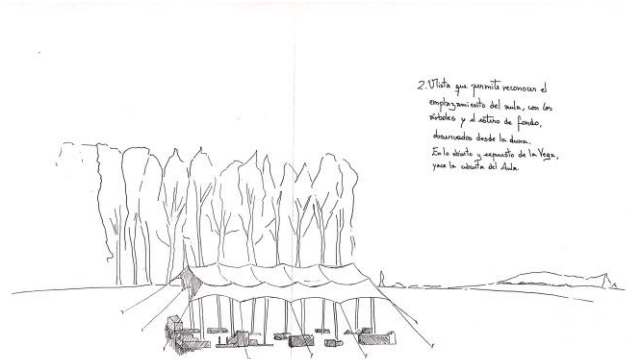 2. Vista que permite reconocer el
emplazamiento del aula, con los
árboles y el estero de fondo,
observados desde la duna.
En lo abierto y expuesto de la Vega,
yace la cubierta del Aula.